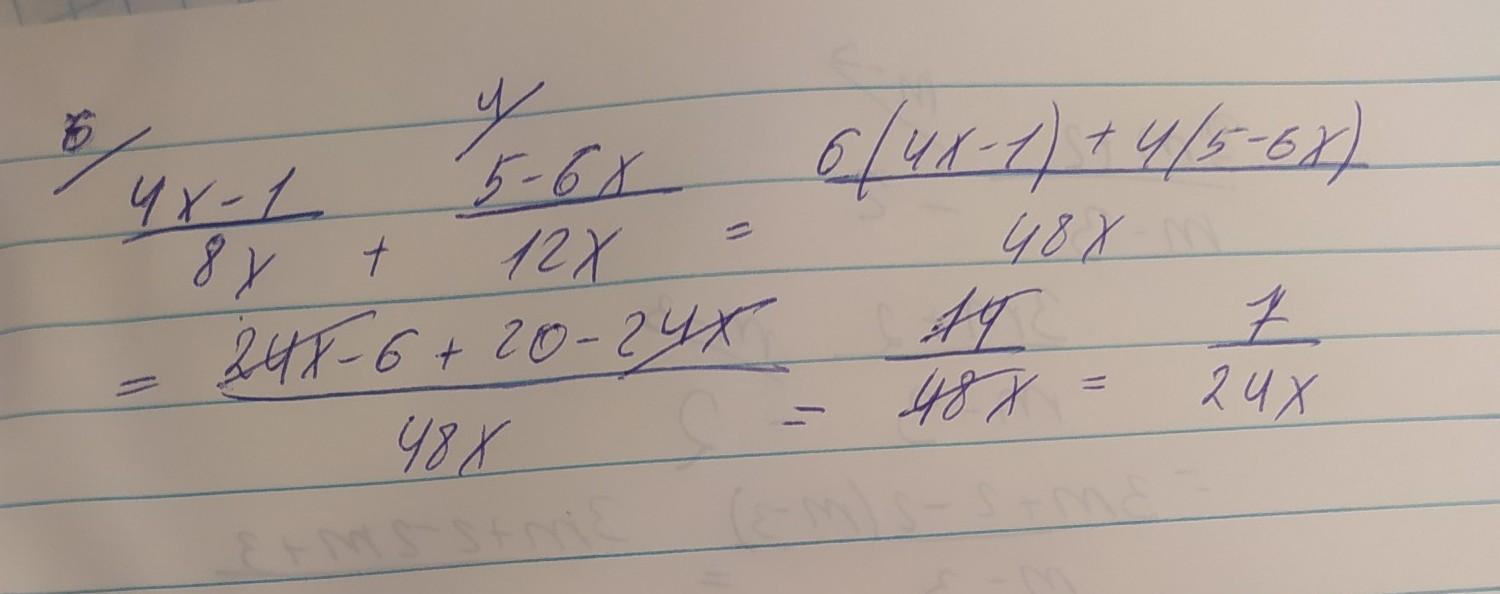 6/ (4x-1)/(8x) + 4/ (5-6x)/(12x) = (6(4x-1)+4(5-6x))/(48x)
= (24x-6+20-24x)/(48x) = 14/(48x) = 7/(24x)